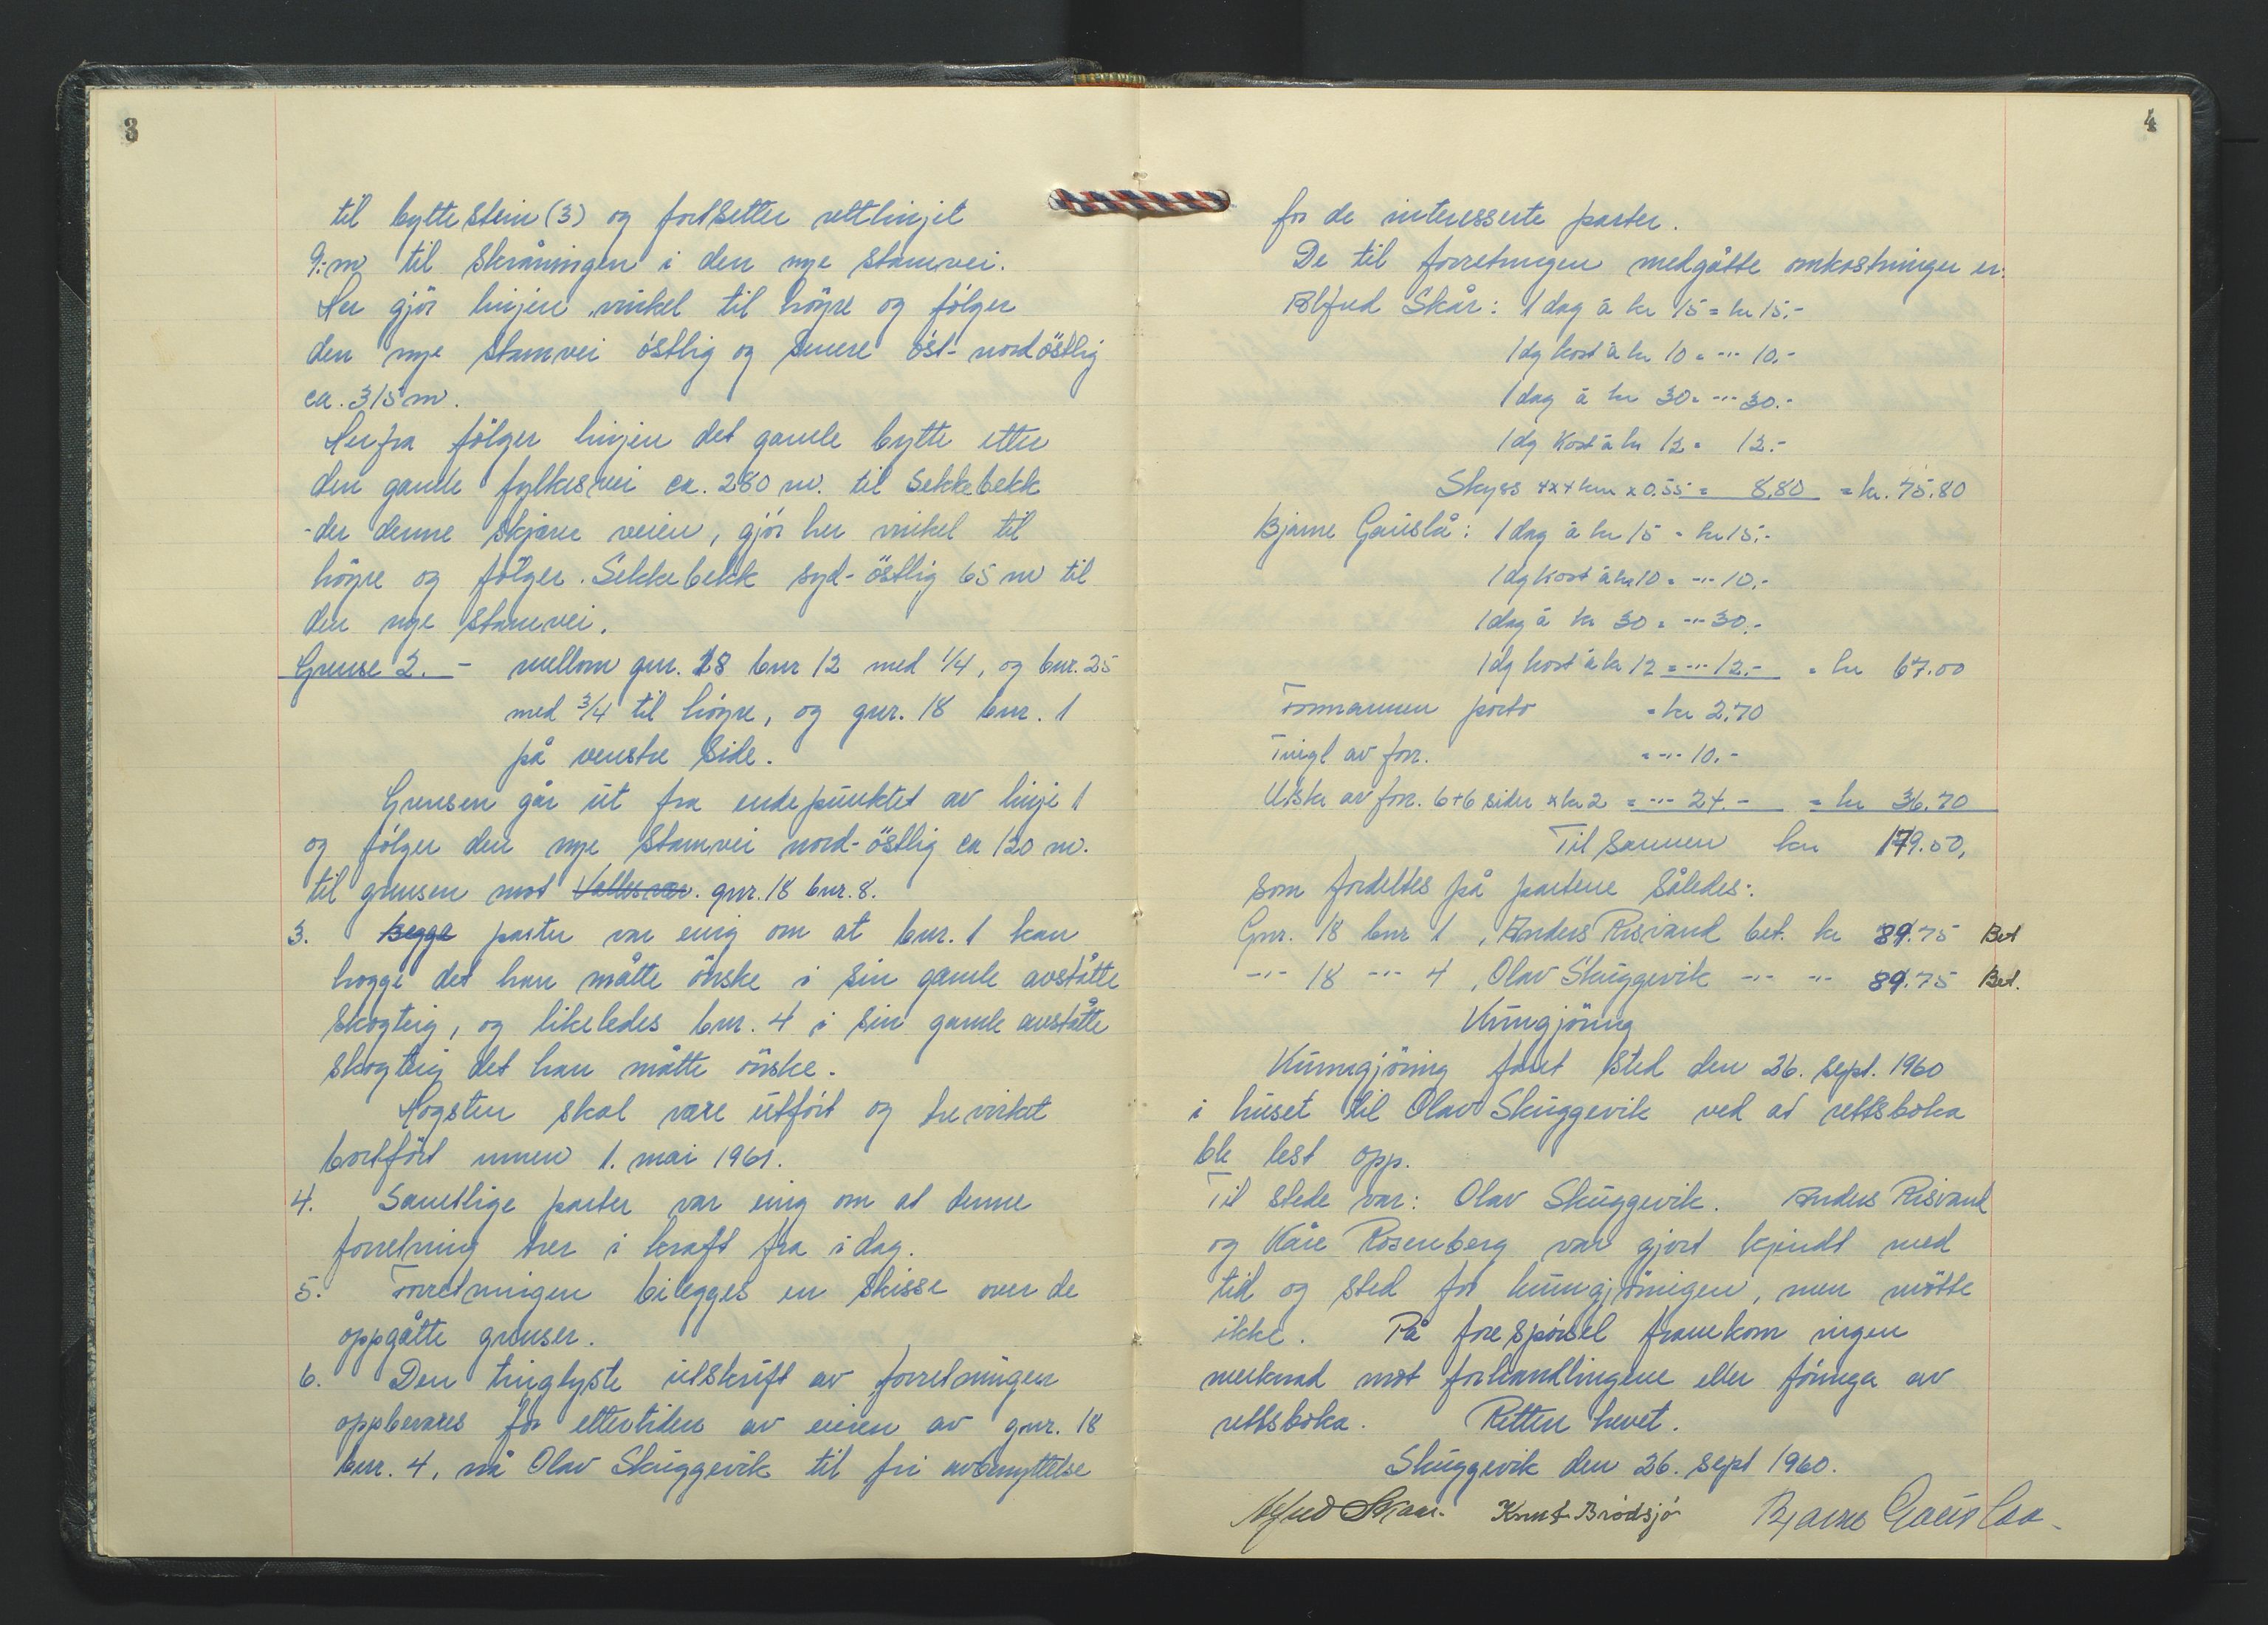 3
til byttestein (3) og fortsetter rettlinjet
9.m til skråningen i den nye stamvei.
Her gjör linjen vinkel til höyre og fölger
den nye stamvei östlig og senere öst-nordöstlig
ca. 315 m.
Herfra fölger linjen det gamle bytte etter
den gamle fylkesvei ca. 280 m. til Sekkebekk
- der denne skjærer veien, gjör her vinkel til
höyre og fölger Sekkebekk syd-östlig 65 m til
den nye stamvei.
Grense 2. - mellom gnr. 18 bnr 12 med 1/4, og bnr. 25
med 3/4 til höyre, og gnr. 18 bnr. 1
på venstre side.
Grensen går ut fra endepunktet av linje 1
og fölger den nye stamvei nord-östlig ca 120 m.
til grensen mot gnr. 18 bnr. 8.
3. Begge parter var enig om at bnr. 1 kan
hogge det han måtte önske i sin gamle avståtte
skogteig, og likeledes bnr. 4 i sin gamle avståtte
skogteig det han måtte önske.
Hogsten skal være utfört og trevirket
bortfört innen 1. mai 1961.
4. Samtlige parter var enig om at denne
forretning trer i kraft fra i dag.
5. Forretningen bilegges en skisse over de
oppgåtte grenser.
6. Den tinglyste utskrift av forretningen
oppbevares for ettertiden av eieren av gnr. 18
bnr. 4, nå Olav Skuggevik til fri avbenyttelse
4
for de interesserte parter.
De til forretningen medgåtte omkostninger er:
Alfred Skår: 1 dag á kr 15 = kr 15.-
1 dg kost á kr 10 = -"- 10.-
1 dag á kr 30 = -"- 30.-
1 dg Kost á kr 12 = 12.-
Skyss 4x4 km x 0.55 = 8.80 = kr. 75.80
Bjarne Gauslå: 1 dag á kr 15 = kr 15.-
1 dg kost á kr 10 = -"- 10.-
1 dag á kr 30 = -"- 30.-
1 dg kost á kr 12 = -"- 12.- = kr 67.00
Formannen porto = kr 2.70
Tingl av forr. = -"- 10.-
Utskr av forr. 6+6 sider x kr 2 = -"- 24.- = kr 36.70
Til sammen kr 179.50,
som fordeltes på partene således:
Gnr. 18 bnr 1, Anders Risvand bet. kr 89.75 Bet
-"- 18 -"- 4, Olav Skuggevik -"- -"- 89.75 Bet.
Kungjöring
Kunngjöring fant sted den 26. sept. 1960
i huset til Olav Skuggevik ved at rettsboka
ble lest opp.
Til stede var: Olav Skuggevik. Anders Risvand
og Kåre Rosenberg var gjort kjendt med
tid og sted for kunngjöringen, men mötte
ikke. På forespörsel framkom ingen
merknad mot forhandlingene eller föringa av
rettsboka. Retten hevet.
Skuggevik den 26. sept 1960.
Alfred Skaar. Knut Brödsjö Bjarne Gauslaa.